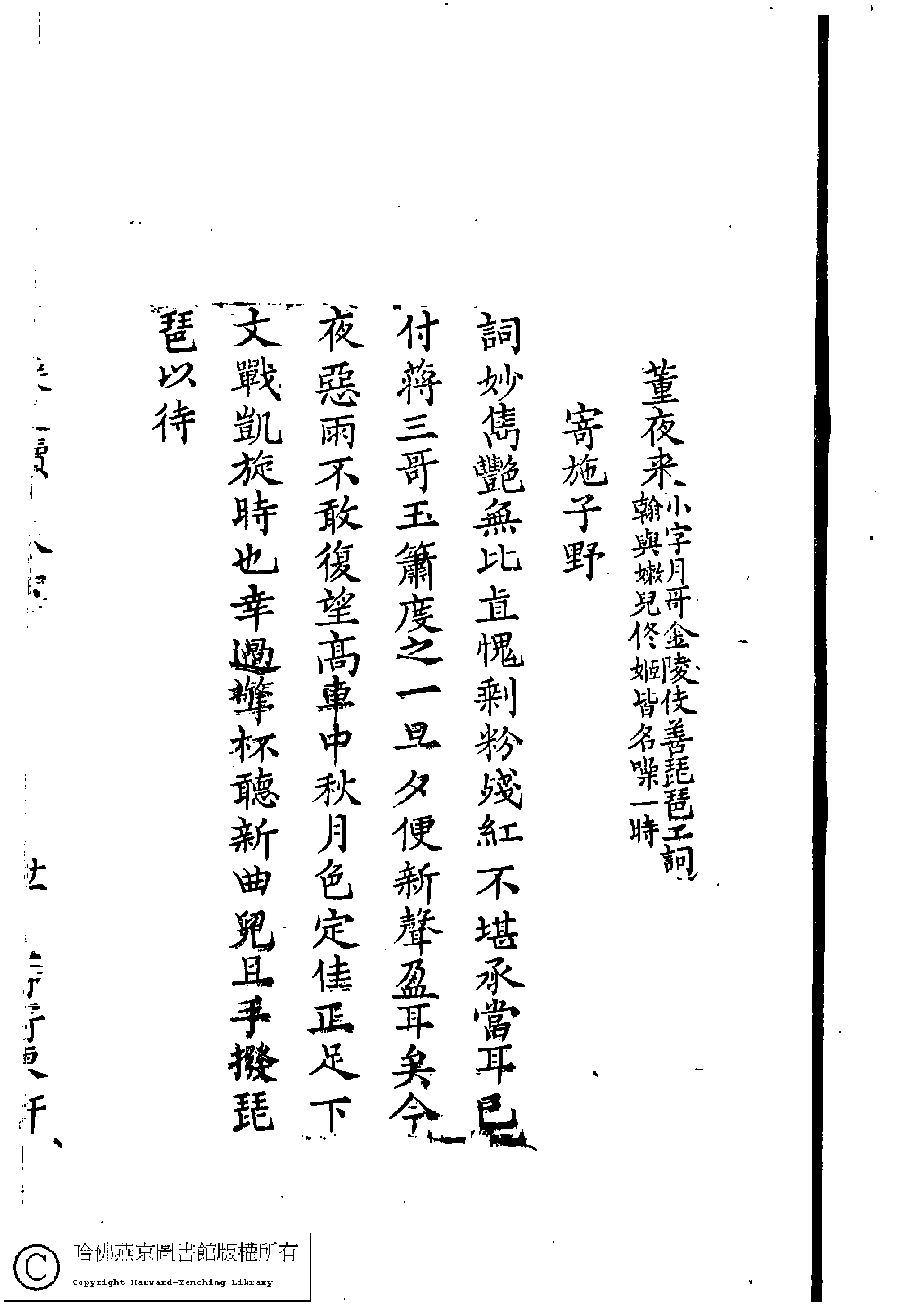 董夜来小字月哥金陵伎善琵琶工詞
翰與嫩兒佟姬皆名噪一時
寄施子野
詞妙雋艷無比直愧剩粉殘紅不堪承當耳已
付蔣三哥玉簫度之一旦夕便新聲盈耳矣今
夜惡雨不敢復望高車中秋月色定佳正足下
文戰凱旋時也幸過攜杯聽新曲兒且手撥琵
琶以待
哈佛燕京圖書館版權所有
Copyright Harvard-Yenching Library